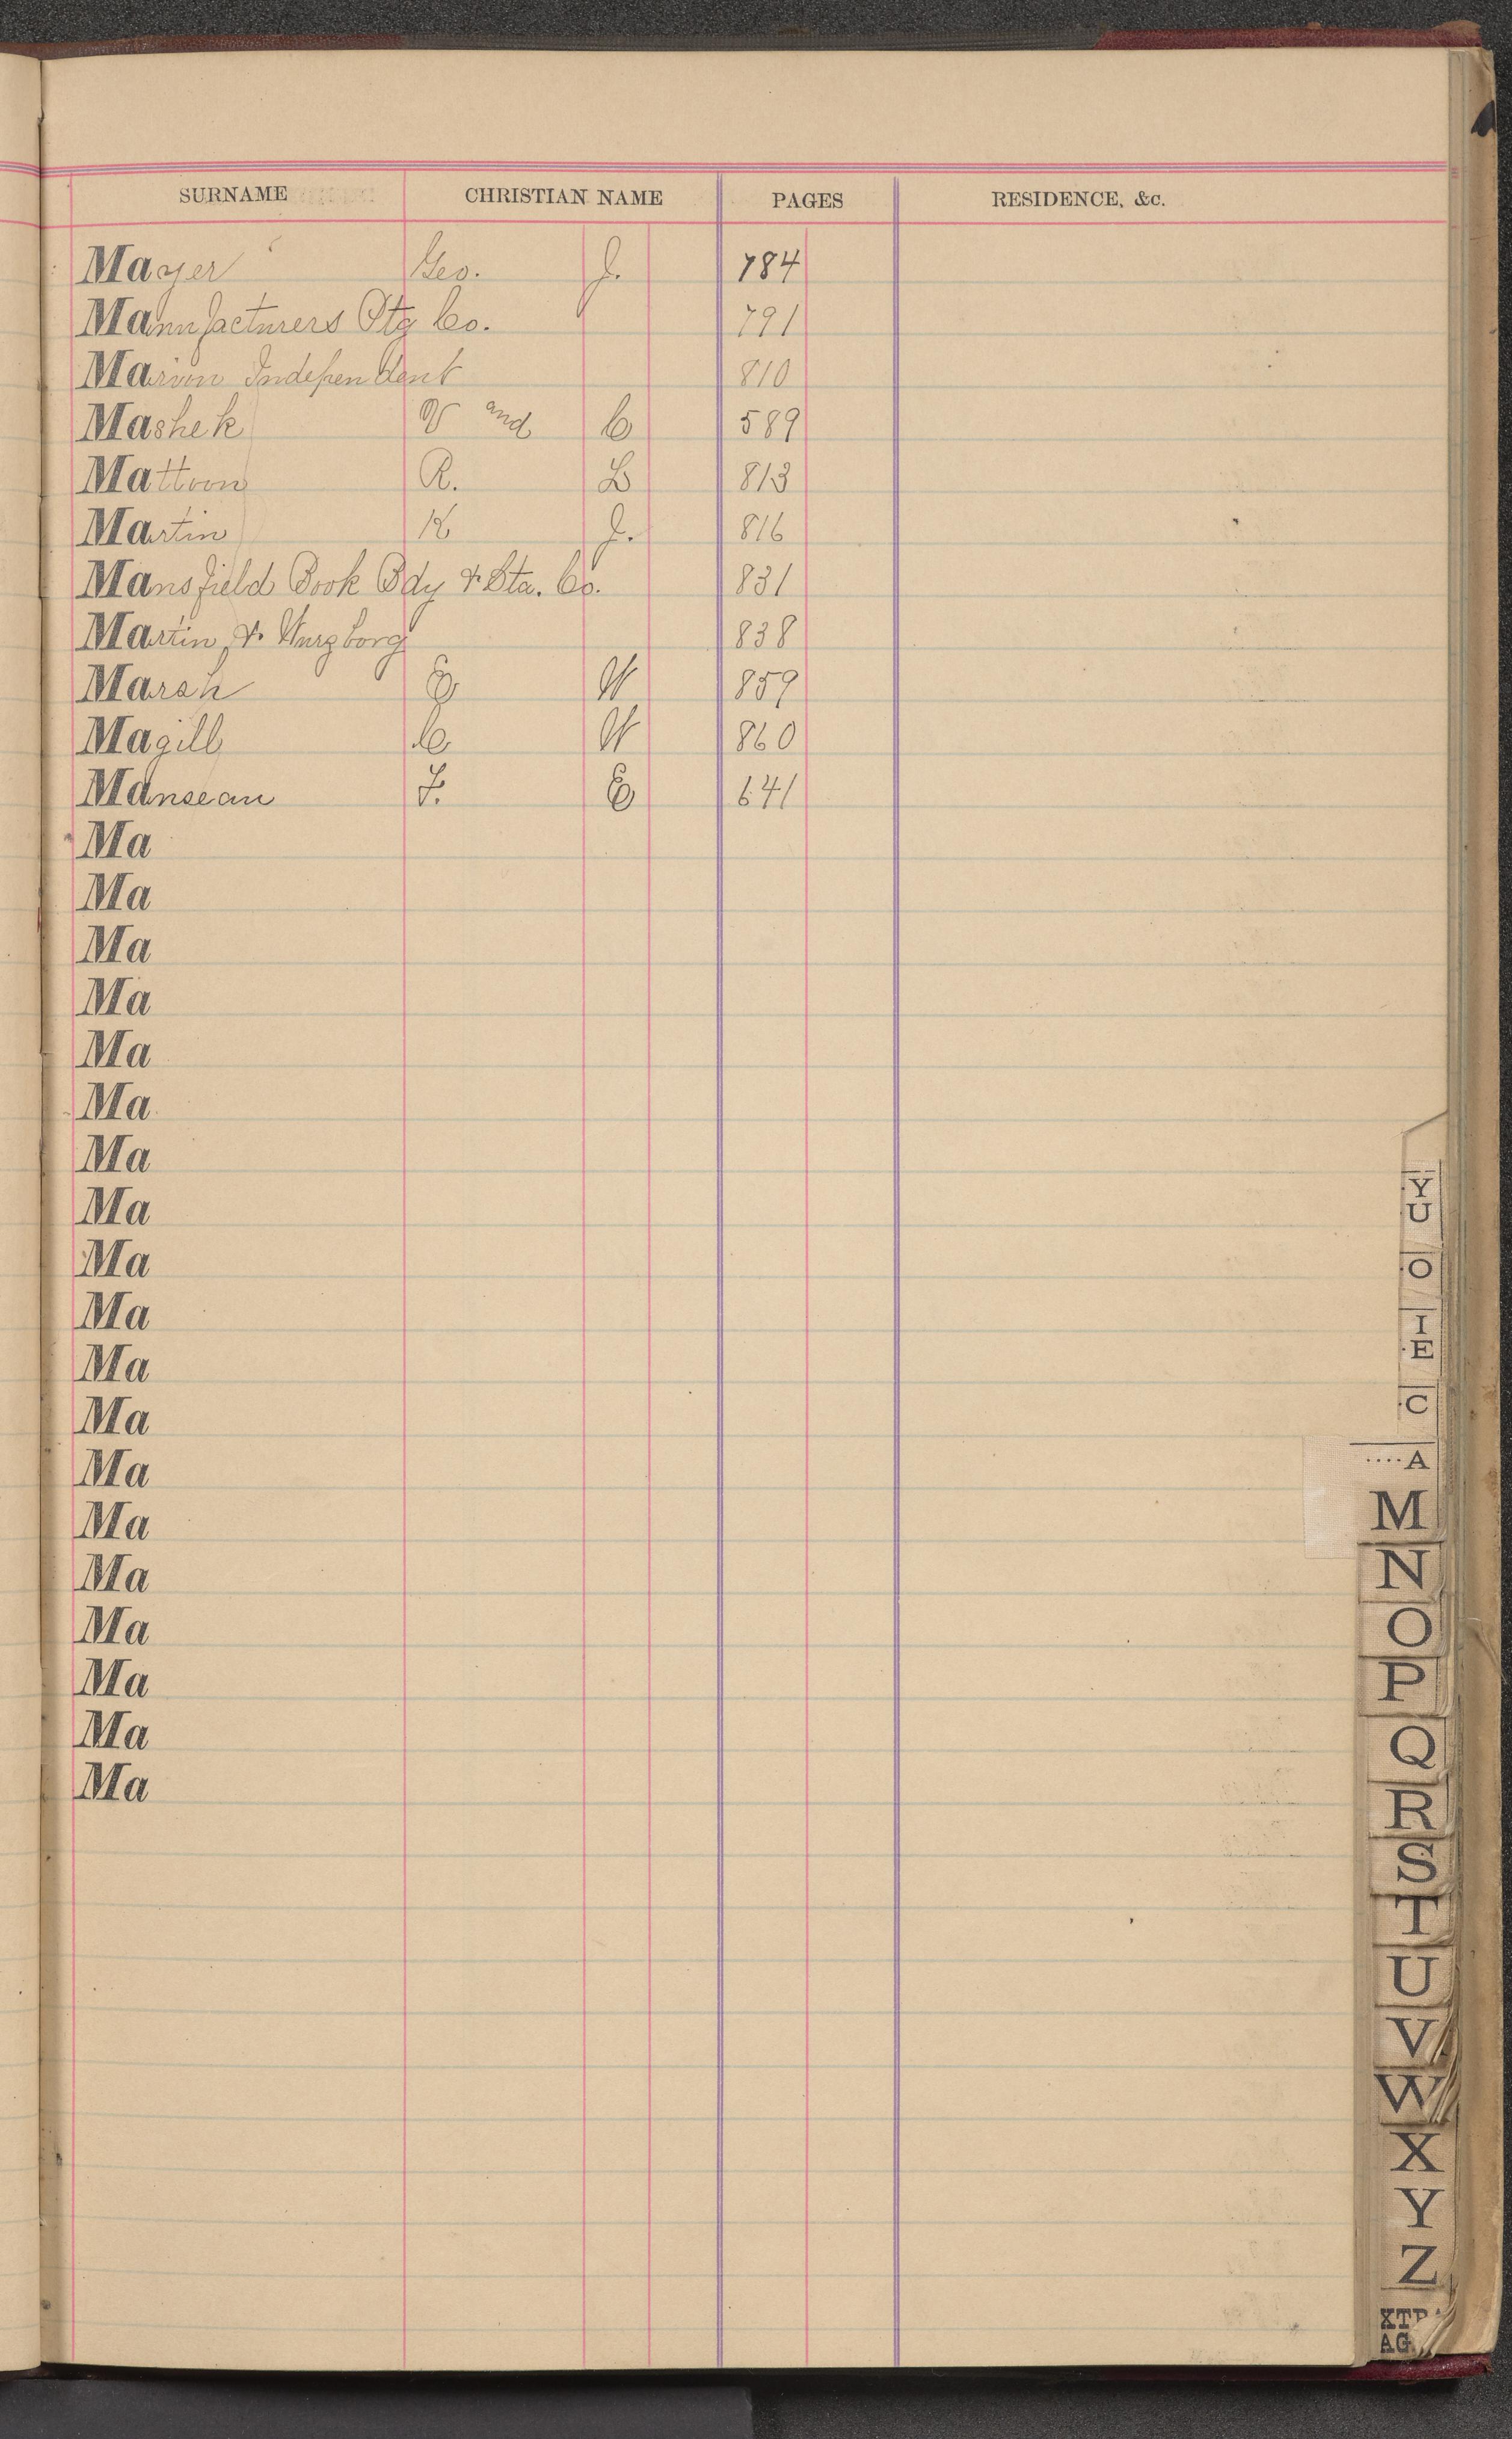 SURNAME CHRISTIAN NAME PAGES RESIDENCE, &c.
Mayer Geo. J. 784
Mannfacturers Ptg Co. 791
Marion Independent 810
Mashek V and C 589
Mattoon R. L 813
Martin K J. 816
Mansfield Book Bdy & Sta. Co. 831
Martin & Wurzborg 838
Marsh E W 859
Magill C W 860
Manseau F. E 641
Ma
Ma
Ma
Ma
Ma
Ma
Ma
Ma
Ma
Ma
Ma
Ma
Ma
Ma
Ma
Ma
Ma
Ma
Ma
Y
U
O
I
E
C
....A
M
N
O
P
Q
R
S
T
U
V
W
X
Y
Z